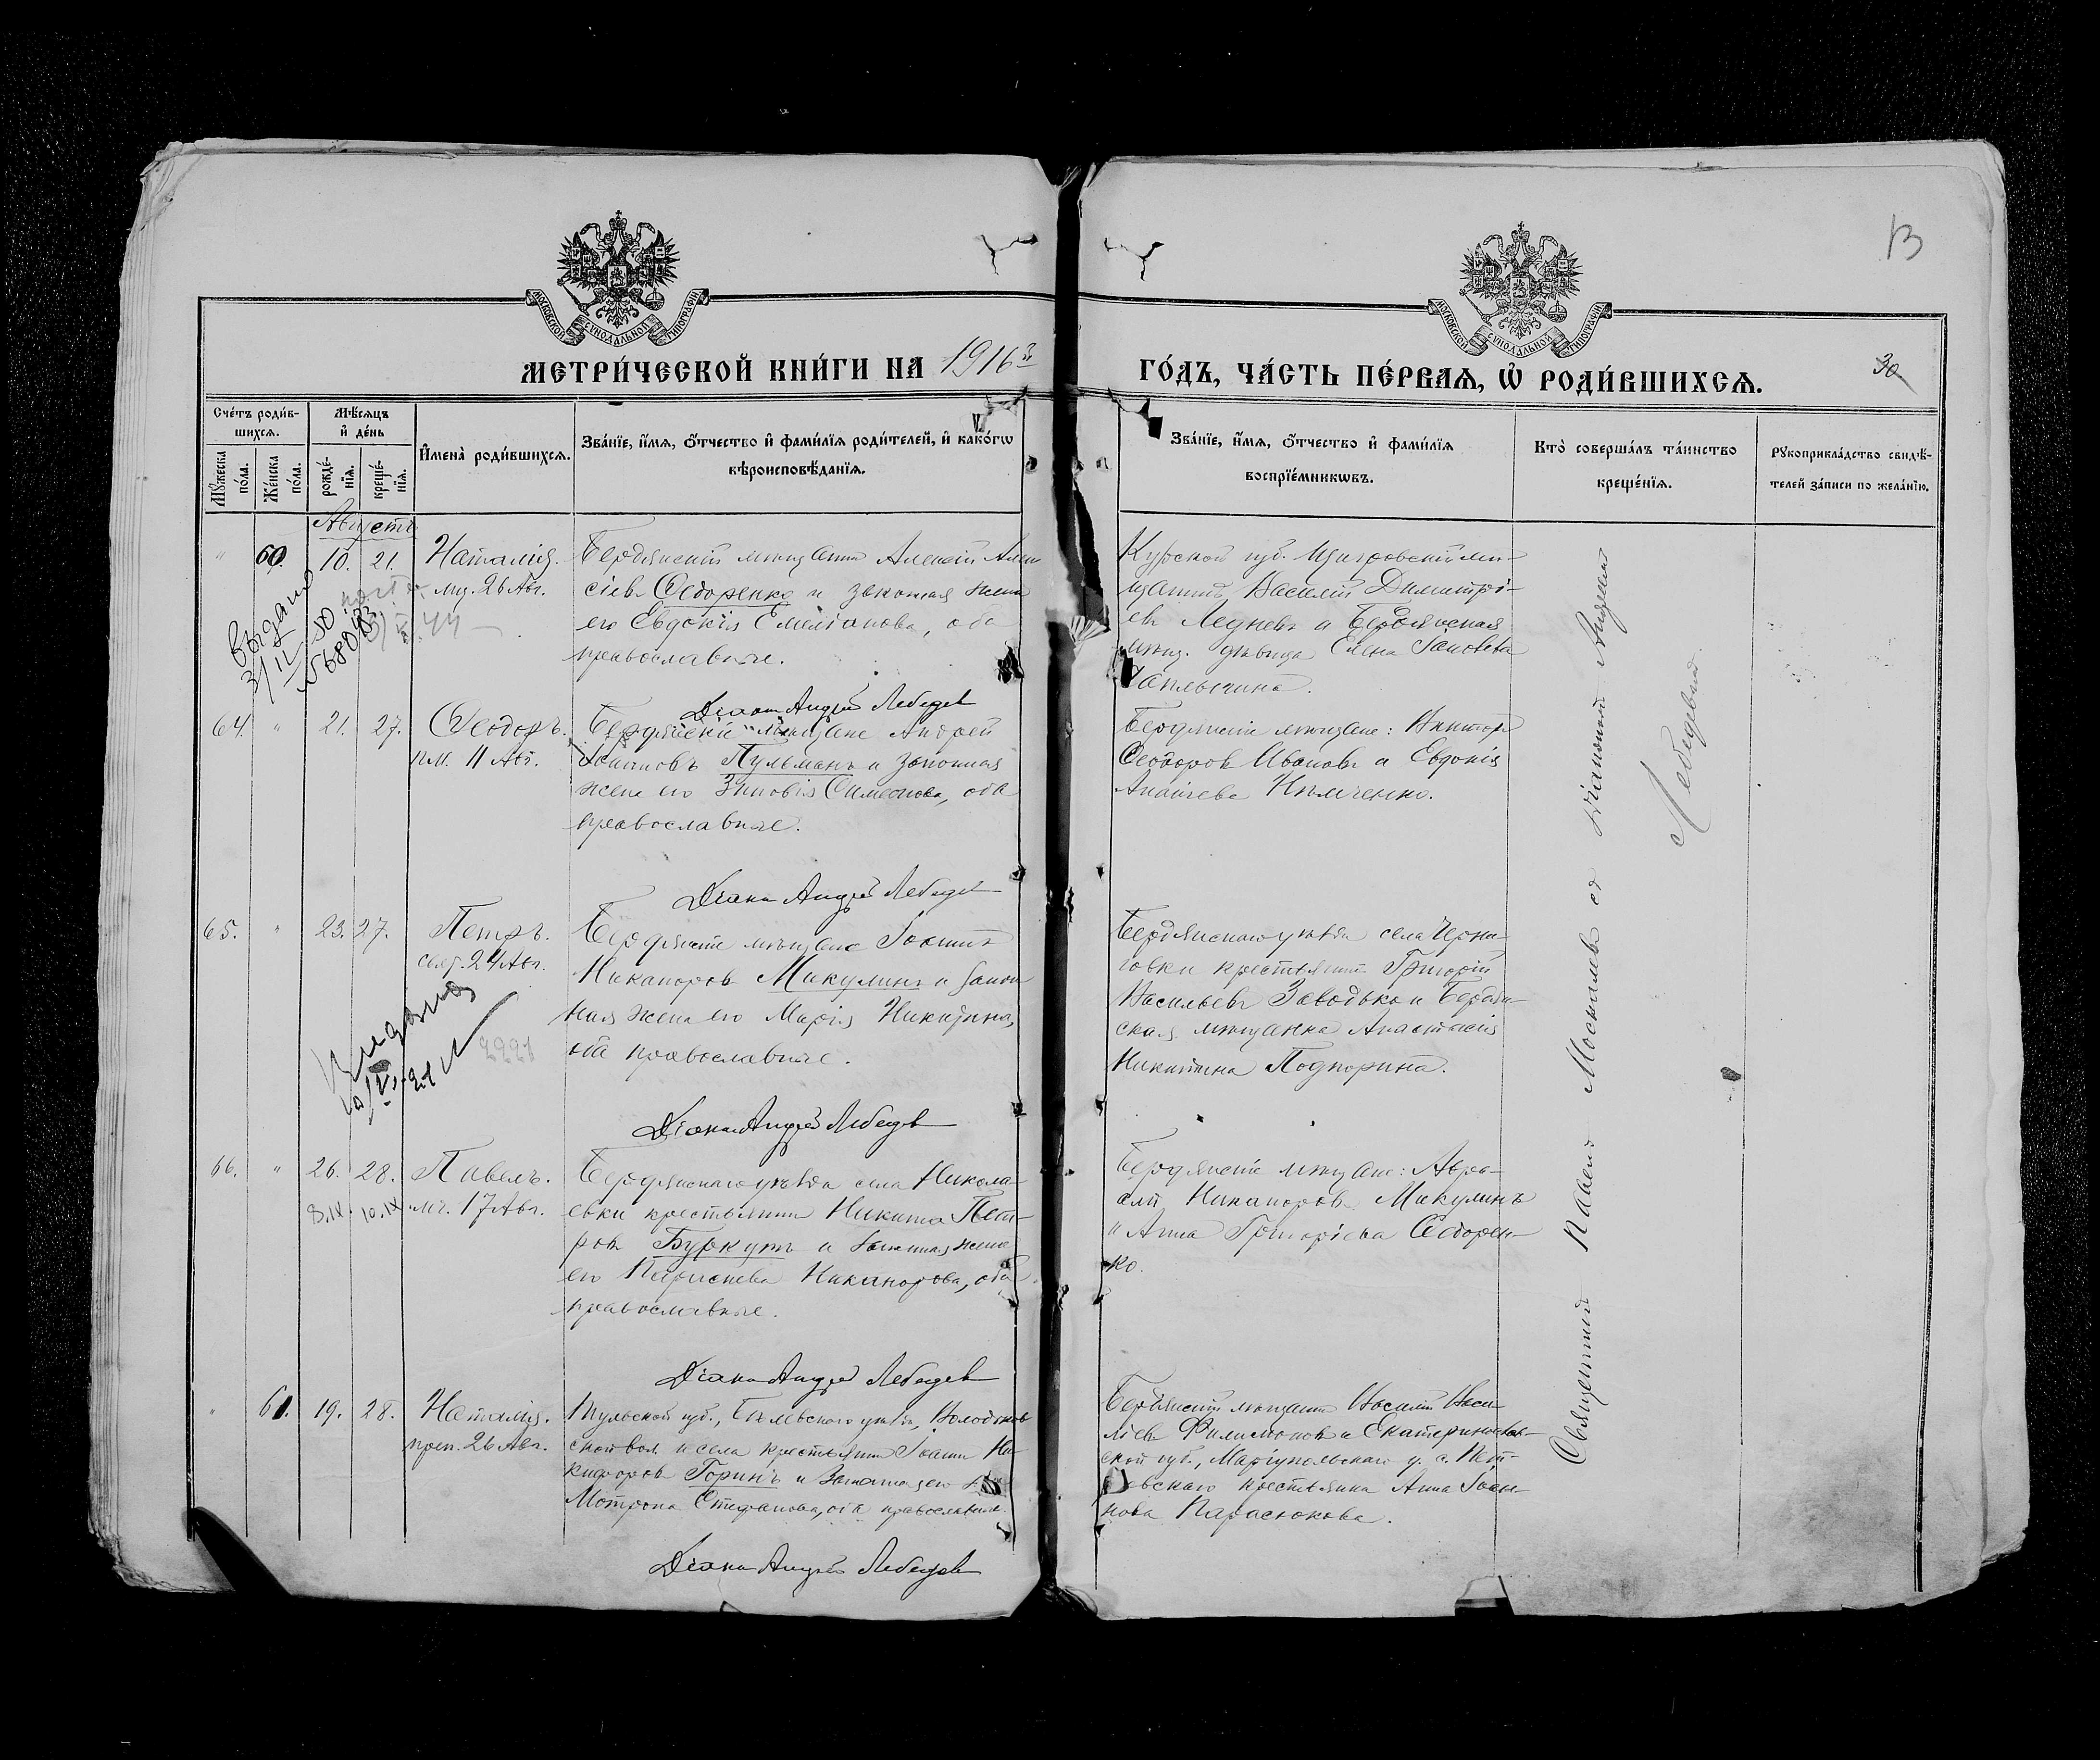 13
МОСКОВСКОЙ СУНОДАЛЬНОЙ ТИПОГРАФІИ
МОСКОВСКОЙ СУНОДАЛЬНОЙ ТИПОГРАФІИ
МЕТРИ́ЧЕСКОЙ КНИ́ГИ НА 1916 й
ГО́ДЪ, ЧА́СТЬ ПЕ́РВАЯ, Ѡ РОДИ́ВШИХСЯ.
30
Сче́тъ роди́в-
шихся.
Мѣ́сяцъ
и де́нь
Му́жеска по́ла.
Же́нска по́ла.
рожде́-
нїя.
креще́-
нїя.
И҆мена̀ роди́вшихся.
Зва́нїе, и҆́мя, ѻ҆́тчество и҆ фами́лїя роди́телей, и҆ како́гѡ
вѣроисповѣ́данїя.
Зва́нїе, и҆́мя, ѻ҆́тчество и҆ фами́лїя
воспрїе́мникѡвъ.
Кто̀ соверша́лъ та́инство
креще́нїя.
Рукоприкла́дство свидѣ́-
телей за́писи по жела́нїю.
Августъ
" 60. 10. 21. Наталія.
мц. 26 Авг.
Бердянскій мѣщанинъ Алексій Алек
сіевъ Ѳедоренко и законная жена
его Евдокія Емеліанова, оба
православные.
Діаконъ Андрей Лебедев
Курской губ. Щигровскій мѣ-
щанинъ Василій Димитрі-
евъ Ледневъ и Бердянская
мѣщ. дѣвица Елена Іаковлева
Чаплыгина.
выдано
64. " 21. 27. Ѳеодоръ.
вм. 11 Авг.
Бердянскіе мѣщане Андрей
Пульманъ и законная
жена его Зиновія Симеонова, оба
православные.
Діаконъ Андрей Лебедев
Бердянскіе мѣщане: Викторъ
Ѳеодоровъ Ивановъ и Евдокія
Нѣмченко.
65. " 23. 27. Петръ.
свят. 24 Авг.
Бердянскіе мѣщане Іоаннъ
Никаноровъ Микулинъ и закон
ная жена его Марія Никитина,
оба православные.
Діаконъ Андрей Лебедев
Бердянскаго уѣзда села Черни-
говки крестьянинъ Григорій
Васильевъ Заводько и Бердян-
ская мѣщанка Анастасія
Никитина Подпорина.
Выдана
2221
66. " 26. 28. Павелъ.
8.IX. 10.IX мч. 17 Авг.
Бердянскаго уѣзда села Никола-
евки крестьянинъ Никита Пет-
ровъ Буркутъ и законная жена
его Параскева Никанорова, оба
православные.
Діаконъ Андрей Лебедев
Бердянскіе мѣщане: Авра-
амъ Никаноровъ Микулинъ
и Анна Григоріева Ѳедорен-
ко.
" 61. 19. 28. Наталія.
преп. 26 Авг.
Тульской губ., Бѣлевскаго уѣзда,
ской вол. и села крестьянинъ Іоаннъ Ни-
кифоровъ Горинъ и законная его
Мотрона Стефанова, оба православные.
Діаконъ Андрей Лебедев
Бердянскій мѣщанинъ Василій Васи-
ліевъ Филимоновъ и Екатеринослав-
ской губ., Маріупольскаго у. с. Пет-
ровскаго крестьянка Анна Іоан-
нова Парасюкова.
Священникъ Павелъ Москалевъ съ діакономъ Андреемъ
Лебедевымъ.